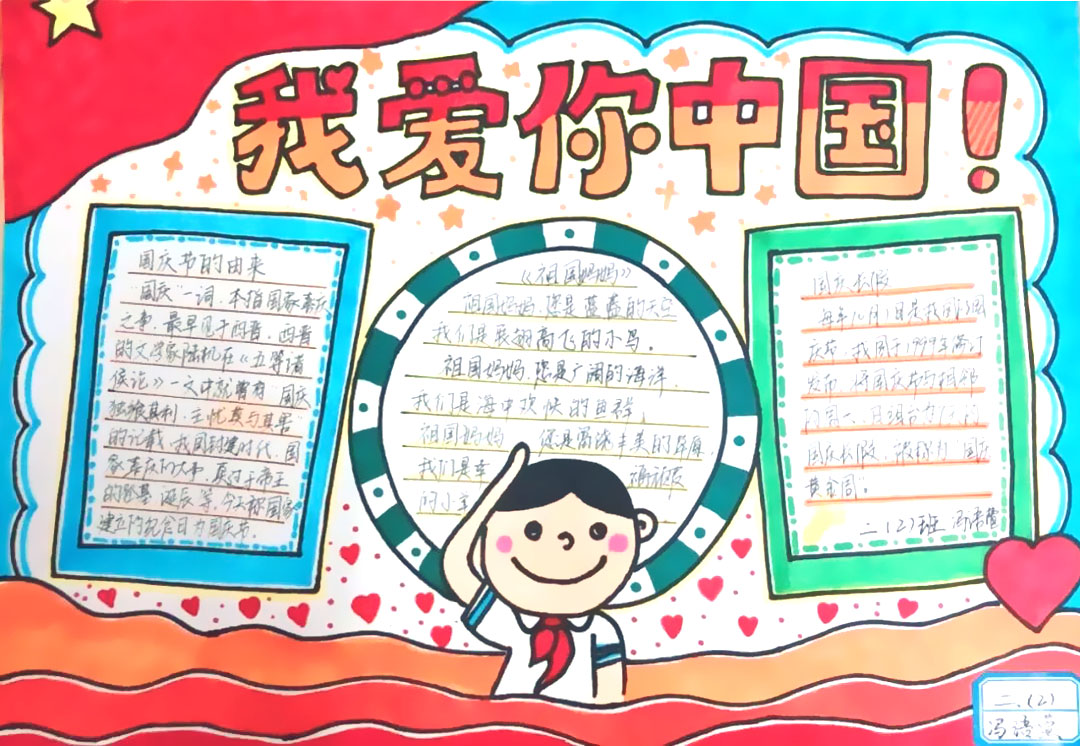 我爱你中国！
国庆节的由来
"国庆"一词，本指国家喜庆
之事，最早见于西晋。西晋
的文学家陆机在《五等诸
侯论》一文中就曾有"国庆
独飨其利，主忧莫与其害"
的记载，我国封建时代、国
家喜庆的大事，莫过于帝王
的登基、诞辰等。今天称国家
建立的纪念日为国庆节。
《祖国妈妈》
祖国妈妈，您是蓝蓝的天空
我们是展翅高飞的小鸟。
祖国妈妈，您是广阔的海洋
我们是海中欢快的鱼群，
祖国妈妈 您是 丰美的草原
我们是幸
的小羊
国庆长假
每年10月1日是我国的国
庆节，我国于1999年修订
发布，将国庆节与相邻
的周一、日组合为7天的
国庆长假，被称为"国庆
黄金周"。
二(2)班 冯
二、(2)
冯